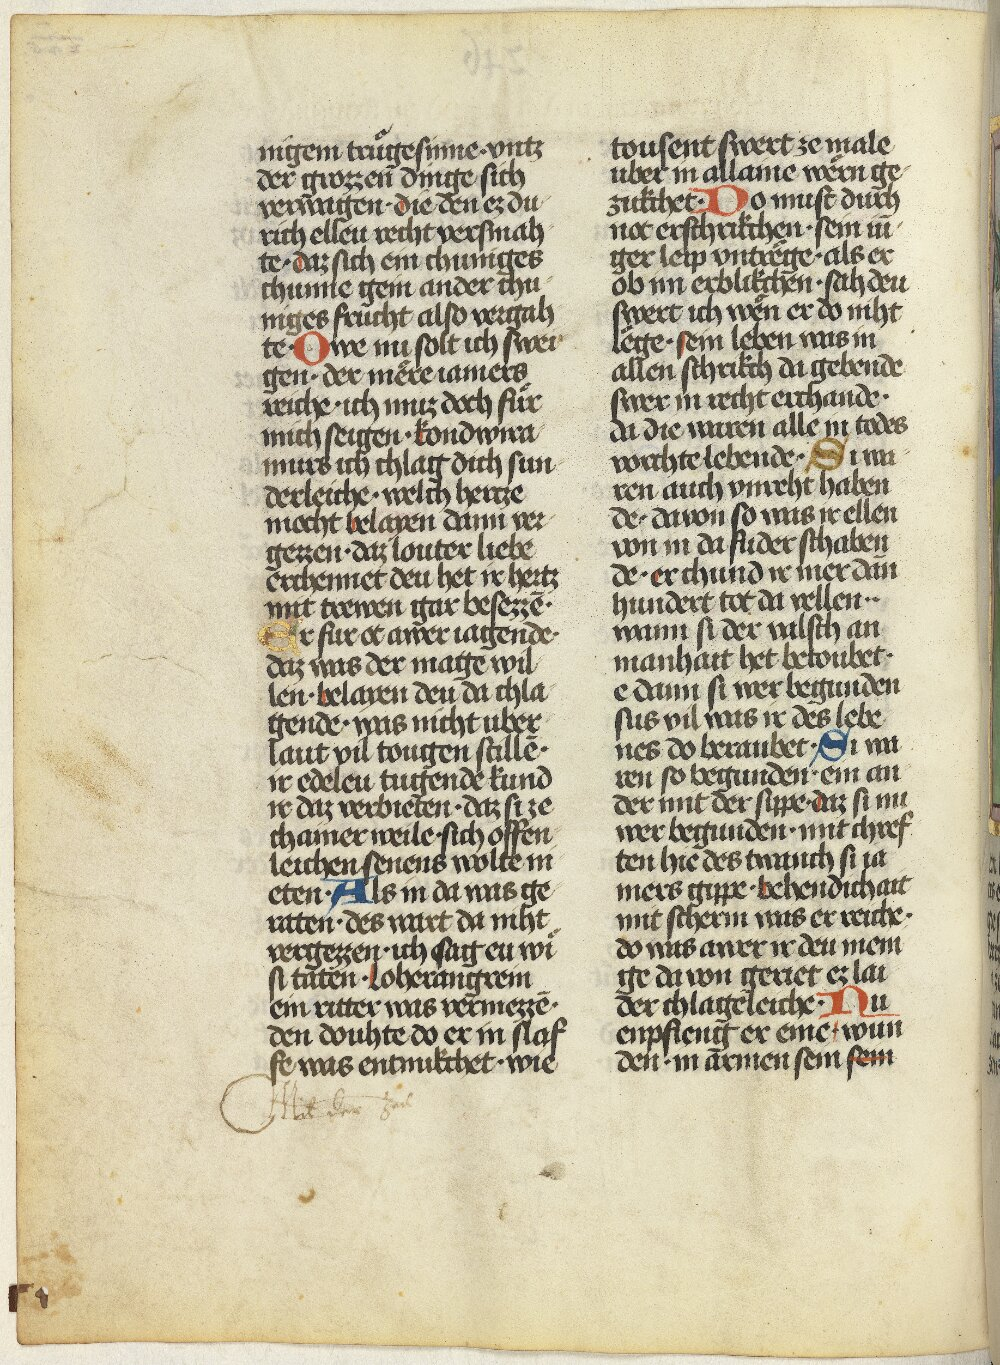 nigem truͦgesinne · vntz
der grozzen dinge sich
verwagen · die den ez du
rich elleu recht versmah
te · daz sich ein chuniges
chunne gein ander chu
niges frucht also vergah
te · Owe nu solt ich swei
gen · der mere iamers
reiche · ich muz doch fur
mich seigen · kondwira
murs ich chlag dich sun
derleiche · welch hertze
mocht belaxen dann ver
gezzen · daz louter liebe
erchennet deu het ir hertz
mit trewen gar besezzē ·
Er fur ot awer iagende ·
daz was der mage wil
len · belaxen deu da chla
gende · was nicht uber
laut vil tougen stille ·
ir edeleu tugende kund
ir daz verbieten · daz si ze
chamer weile · sich offen
leichen senens wolte in
eten · Als in da was ge
raten · des wart da niht
vergezzen · ich sag eu wi
si taten · Loherangrem
ein ritter was vermezzē ·
den douhte do er in slaf
fe was entnukchet · wie
Mit der
tousent swert ze male
uber in allaine wern ge
zukchet · Do must durch
not erschrikchen · sein iu
ger leip vntrege · als er
ob im erblikchen · sah deu
swert ich wen er do niht
lege · sein leben was in
allen schrikch da gebende
swer in recht erchande ·
da die waren alle in todes
vorchte lebende · Si wa
ren auch vnreht haben
de · davon so was ir ellen
von in da fuder schaben
de · er chund ir mer dan
hundert tot da vellen ··
wann si der valsch an
manhait het betoubet ·
e dann si wer begunden
sus vil was ir des lebe
nes do beraubet · Si wa
ren so begunden · ein an
der mit der sippe · daz si nu
wer begunden · mit chref
ten hie des twanch si ia
mers gippe · behendichait
mit scherm was er reiche ·
do was awer ir deu meni
ge da von geriet ez lai
der chlageleiche · Nu
enpfieng er eine · wun
den · in armen sein sein